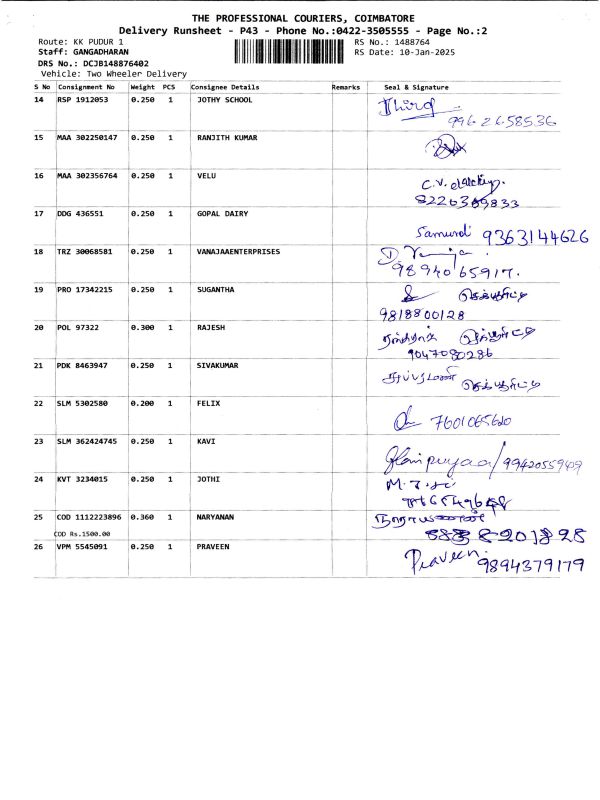 THE PROFESSIONAL COURIERS, COIMBATORE
Delivery Runsheet - P43 - Phone No.:0422-3505555 - Page No.:2
Route: KK PUDUR 1 RS No.: 1488764
Staff: GANGADHARAN RS Date: 10-Jan-2025
DRS No.: DCJB148876402
Vehicle: Two Wheeler Delivery
S No Consignment No Weight PCS Consignee Details Remarks Seal & Signature
14 RSP 1912053 0.250 1 JOTHY SCHOOL
9962658536
15 MAA 302250147 0.250 1 RANJITH KUMAR
16 MAA 302356764 0.250 1 VELU
C.V.
17 DDG 436551 0.250 1 GOPAL DAIRY
9363144626
18 TRZ 30068581 0.250 1 VANAJAAENTERPRISES
9894065917.
19 PRO 17342215 0.250 1 SUGANTHA
செக்யூரிட்டி
9818800128
20 POL 97322 0.300 1 RAJESH
செக்யூரிட்டி
9047080286
21 PDK 8463947 0.250 1 SIVAKUMAR
செக்யூரிட்டி
22 SLM 5302580 0.200 1 FELIX
7601065620
23 SLM 362424745 0.250 1 KAVI
9942055949
24 KVT 3234015 0.250 1 JOTHI
25 COD 1112223896 0.360 1 NARYANAN
COD Rs.1500.00
26 VPM 5545091 0.250 1 PRAVEEN
Praveen 9894379179